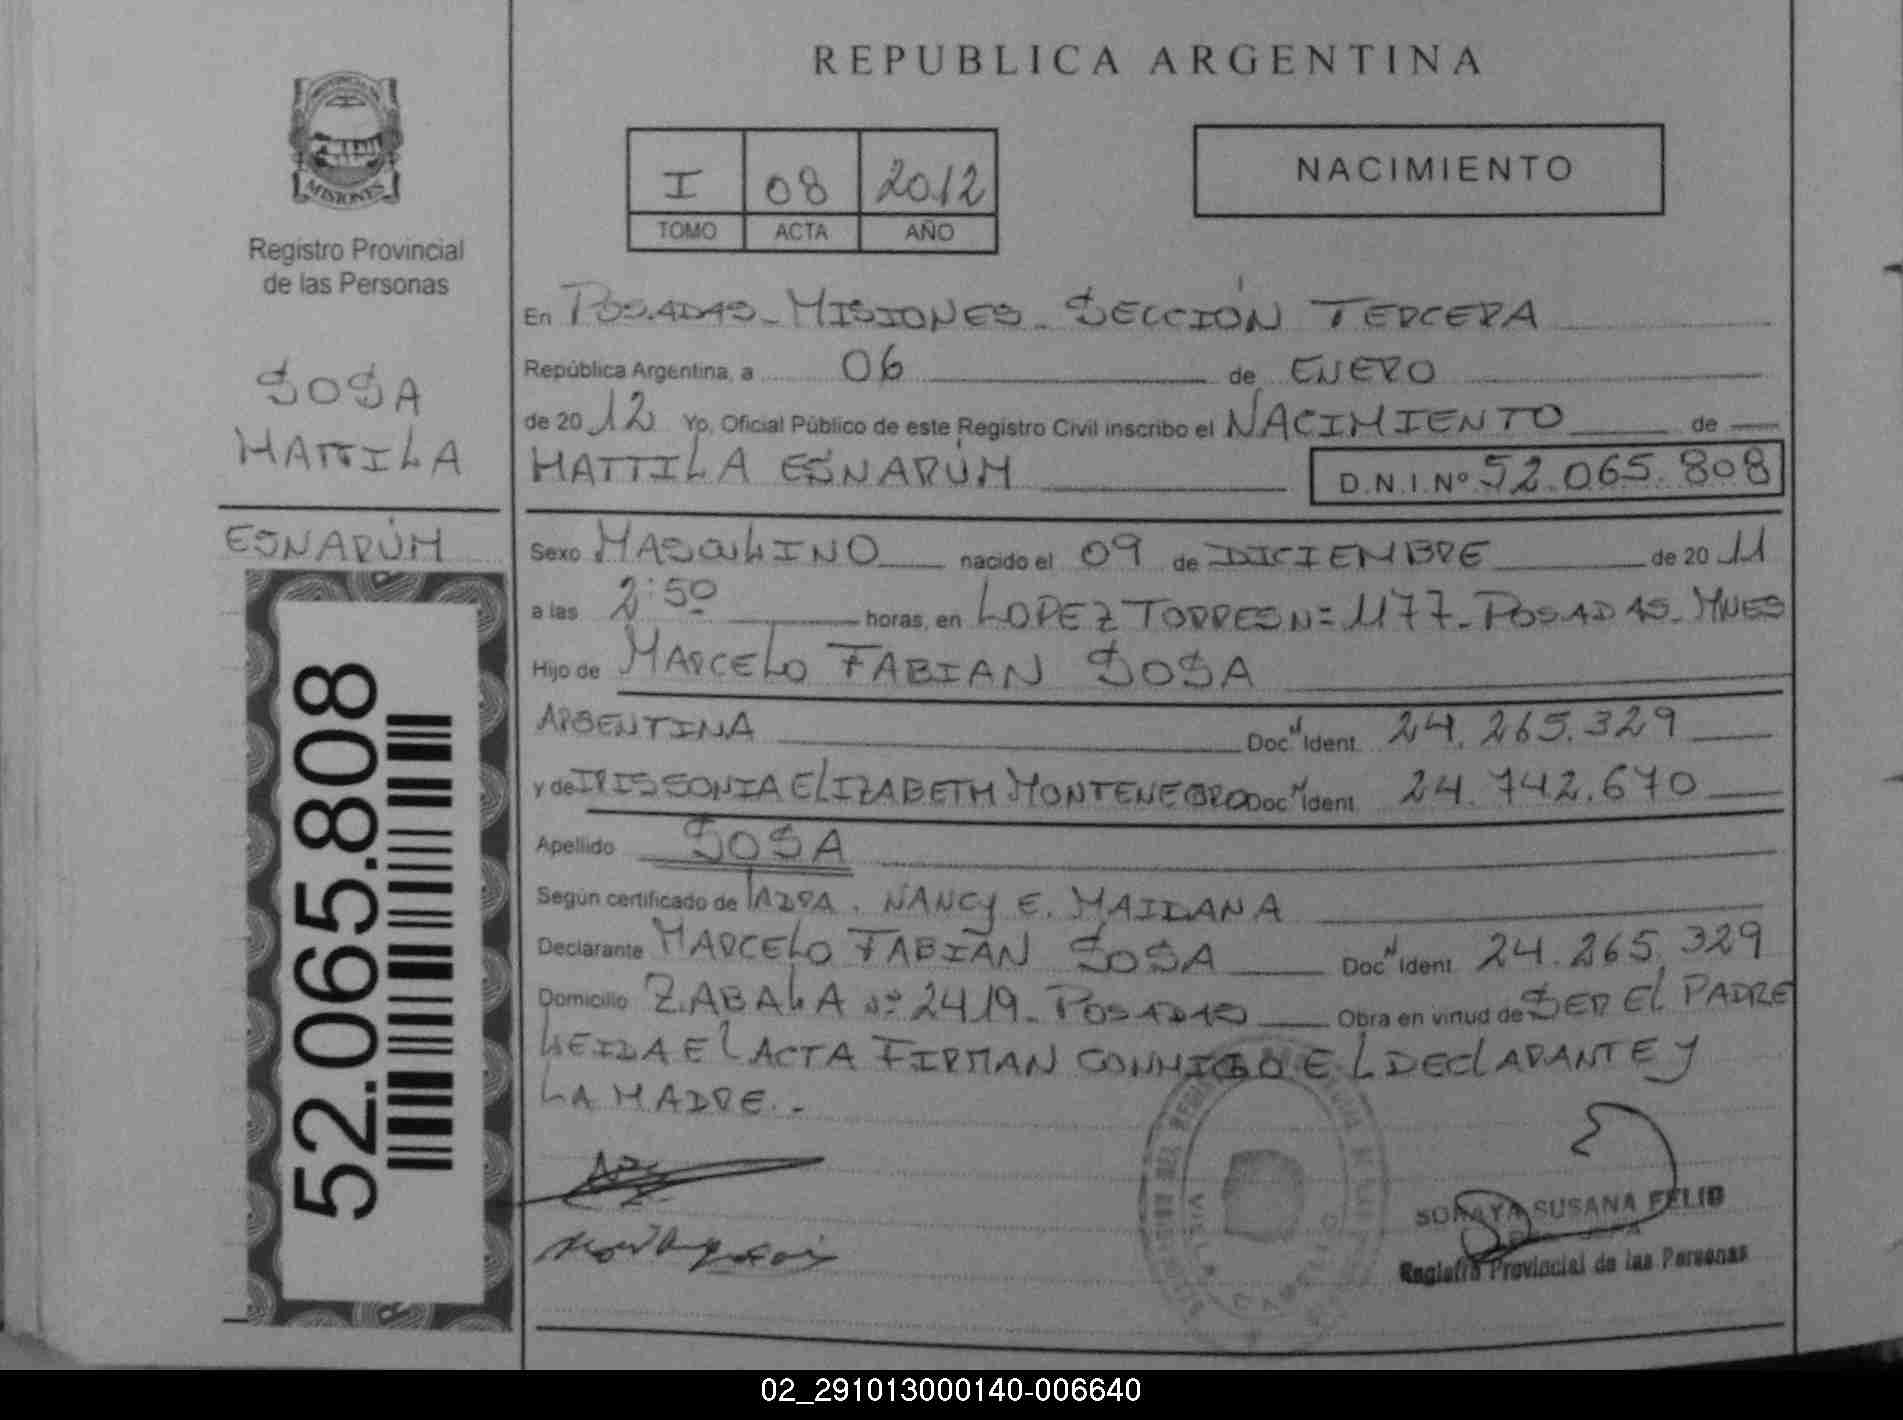 REPUBLICA ARGENTINA
MISIONES
Registro Provincial
de las Personas
I 08 2012
TOMO ACTA AÑO
NACIMIENTO
SOSA
MATTILA
ESNARÚM
52.065.808
En POSADAS - MISIONES - SECCIÓN TERCERA
República Argentina, a 06 de ENERO
de 20 12 Yo, Oficial Público de este Registro Civil inscribo el NACIMIENTO de
MATTILA ESNARÚM D.N.I.Nº 52.065.808
Sexo MASCULINO nacido el 09 de DICIEMBRE de 20 11
a las 2:50 horas, en LOPEZ TORRES Nº 1177 - POSADAS - MNES
Hijo de MARCELO FABIAN SOSA
ARGENTINA Doc. N Ident. 24.265.329
y de IRIS SONIA ELIZABETH MONTENEGRO Doc. N Ident. 24.742.670
Apellido SOSA
Según certificado de NANCY E. MAIDANA
Declarante MARCELO FABIAN SOSA Doc. N Ident. 24.265.329
Domicilio ZABALA Nº 2419 - POSADAS Obra en virtud de SER EL PADRE
LEIDA EL ACTA FIRMAN CONMIGO EL DECLARANTE Y
LA MADRE. -
SORAYA SUSANA
Registro Provincial de las Personas
02_291013000140-006640